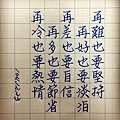 再難也要堅持
再好也要淡泊
再差也要自信
再多也要節省
再冷也要熱情